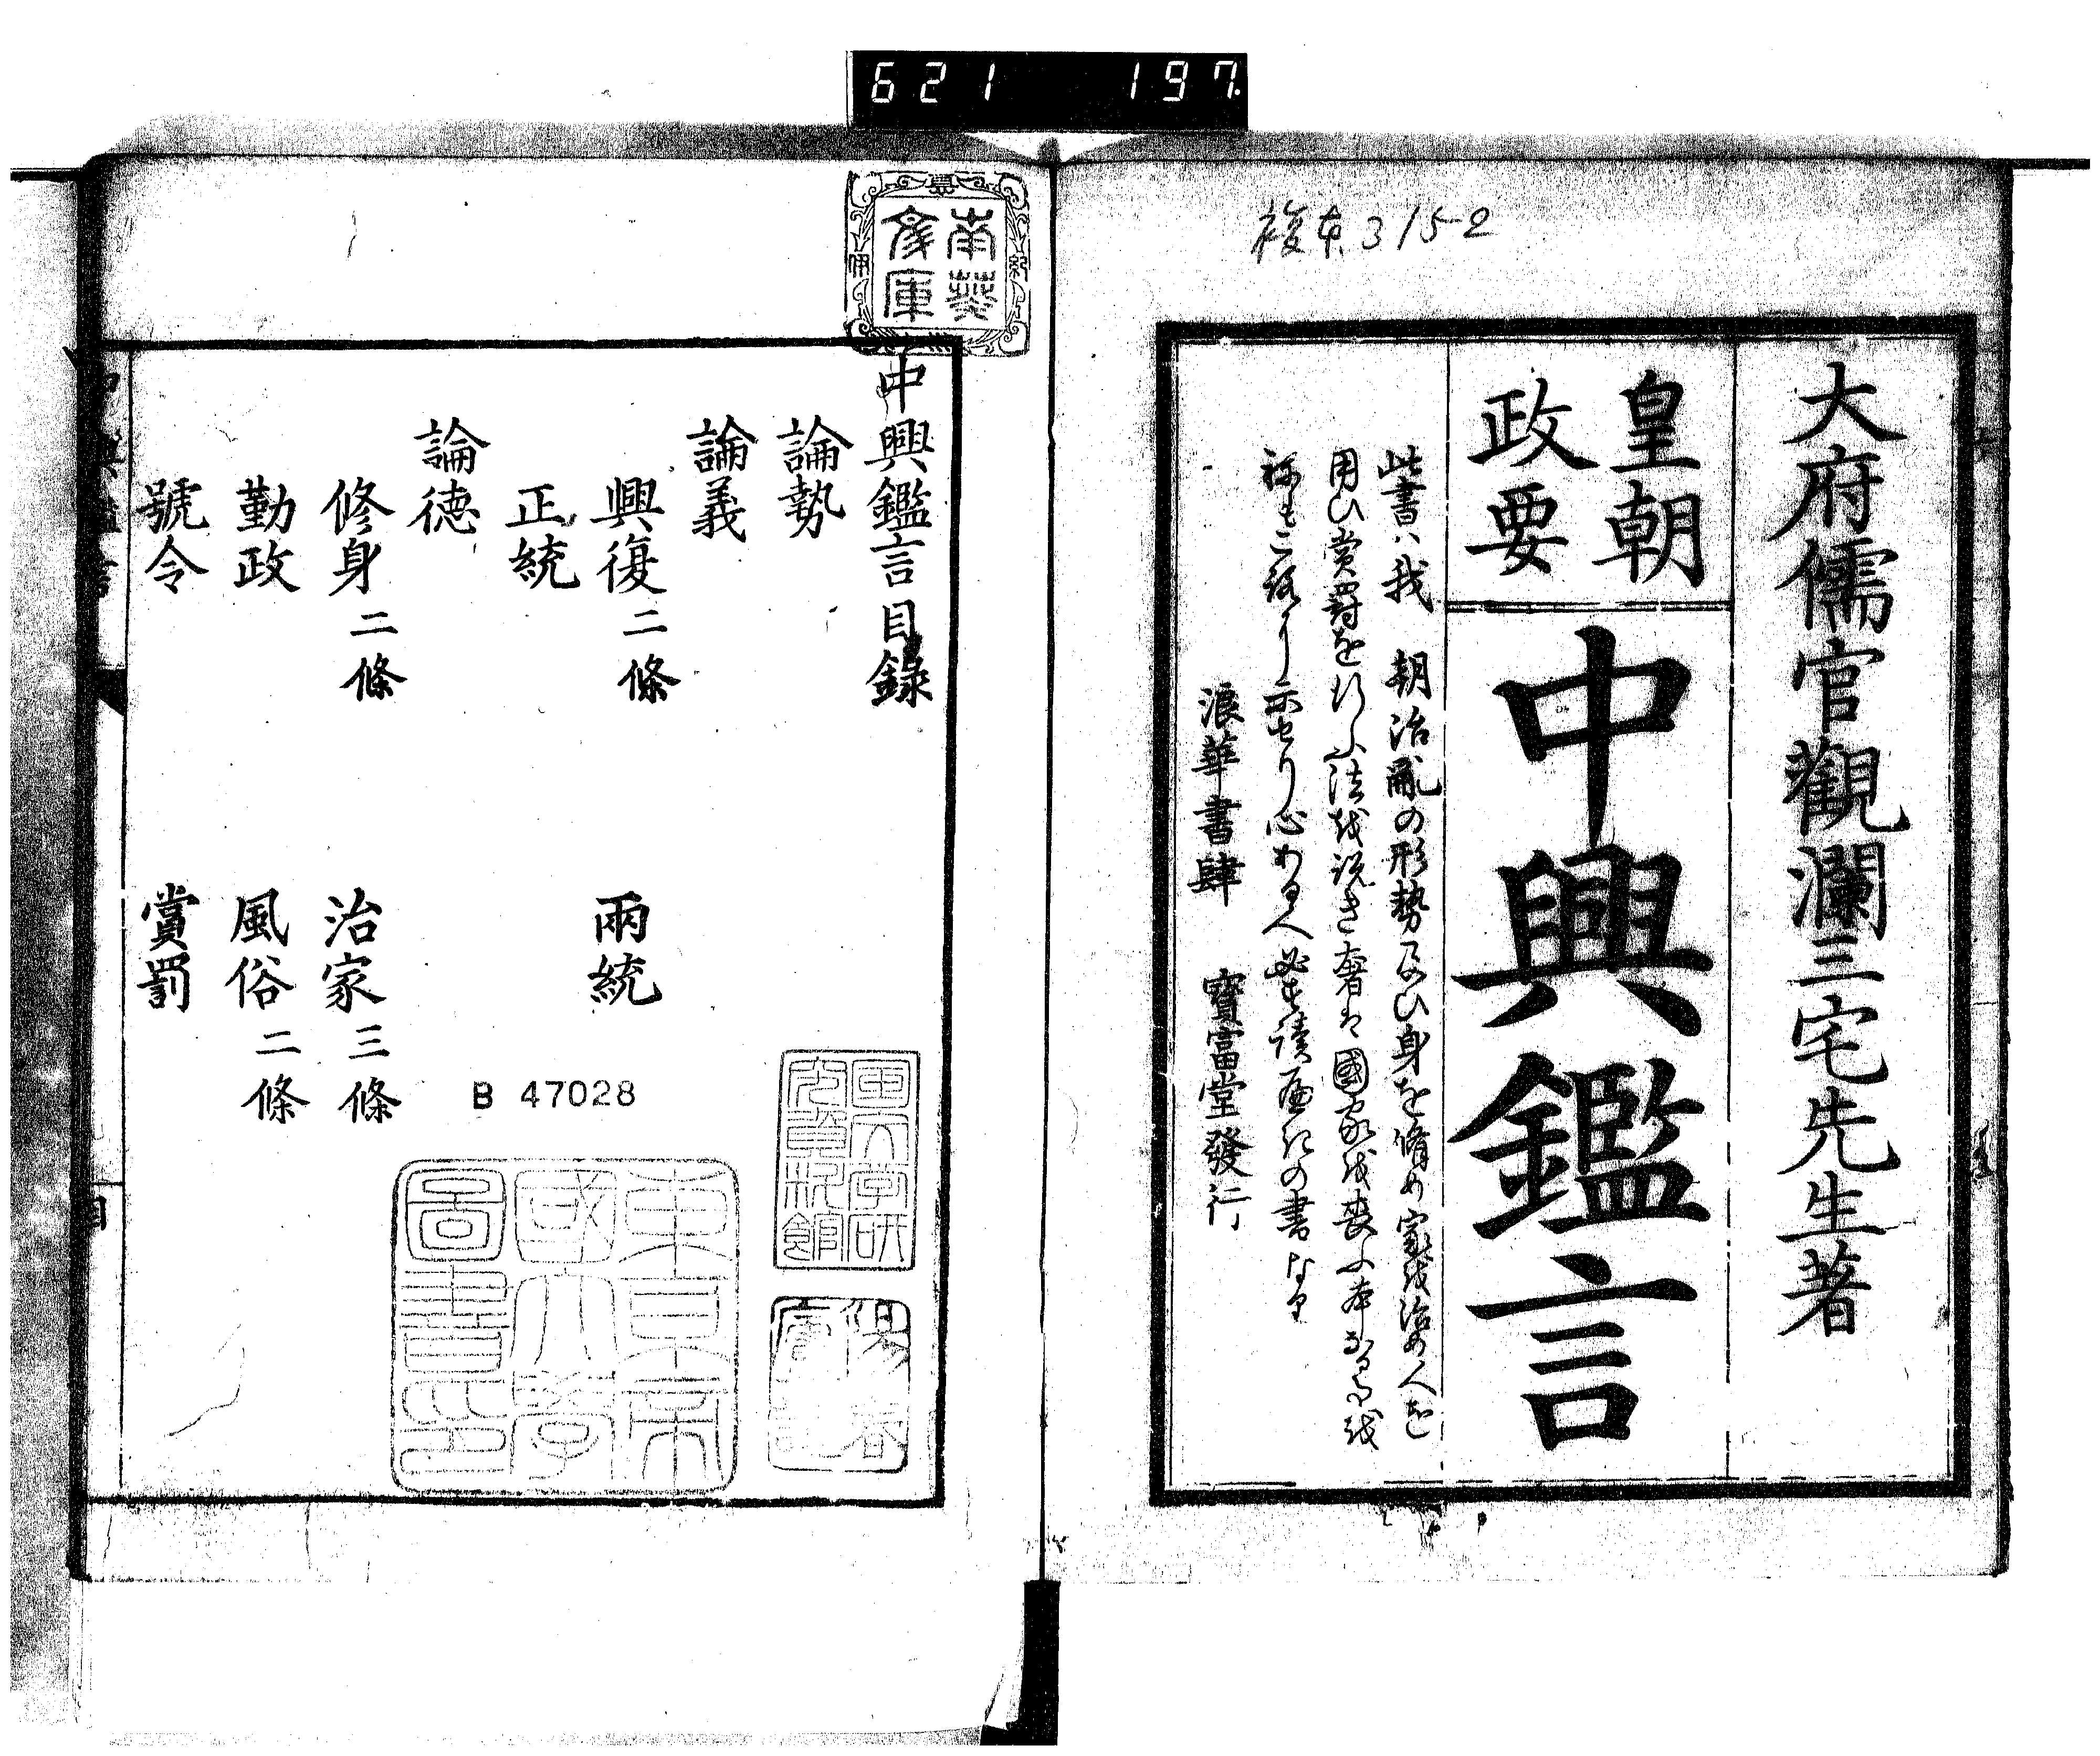 621 197.
複本 3152
大府儒官觀瀾三宅先生著
皇朝
政要
中興鑑言
此書ハ我 朝治亂の形勢及ひ身を脩め家を治め人を
用ひ賞罰を行ふ法を説き奢は國家を喪ふ
示せり心ある人必す讀へきの書なり
浪華書肆 寶富堂發行
南葵
文庫
中興鑑言目錄
論勢
論義
興復二條 兩統
正統
論德
修身二條 治家三條
勤政 風俗二條
號令 賞罰
B 47028
陽春
廬記
東京帝
國大學
圖書印